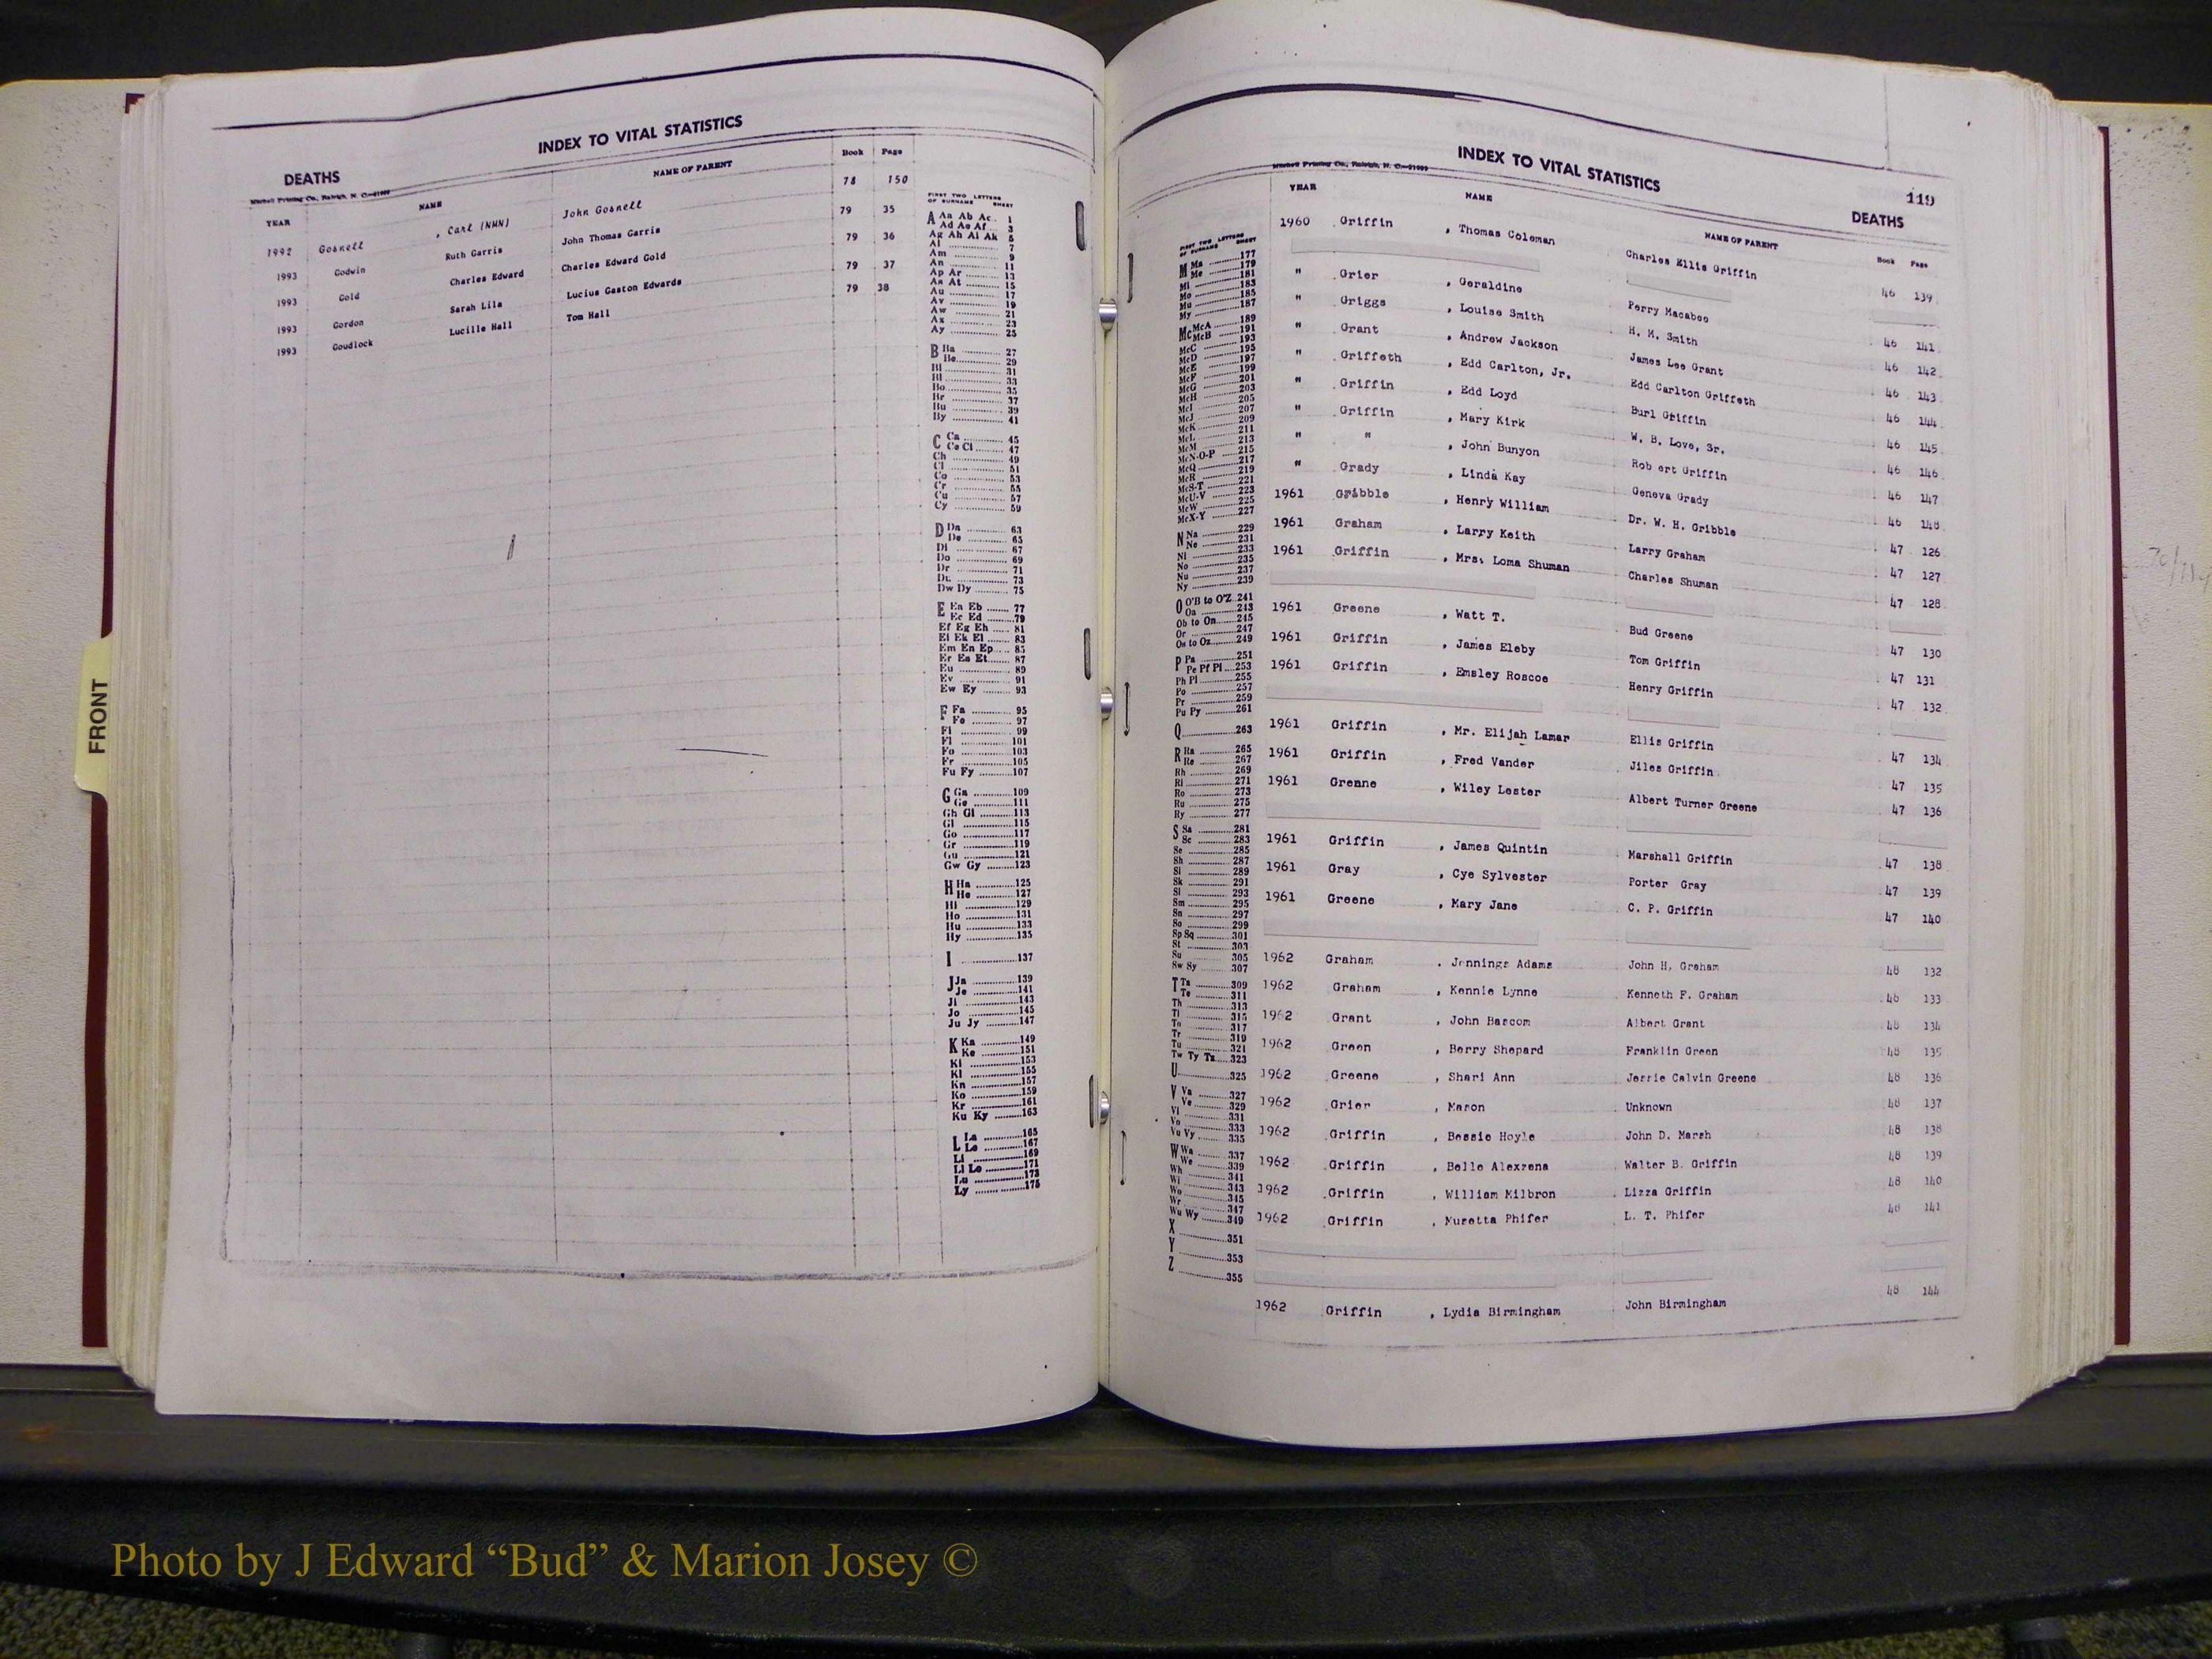 INDEX TO VITAL STATISTICS
DEATHS
Mitchell Printing Co., Raleigh, N. C.
YEAR NAME NAME OF PARENT Book Page
1992 Gosnell , Carl (NMN) John Gosnell 78 150
1993 Godwin Ruth Garris John Thomas Garris 79 35
1993 Gold Charles Edward Charles Edward Gold 79 36
1993 Gordon Sarah Lila Lucius Gaston Edwards 79 37
1993 Goudlock Lucille Hall Tom Hall 79 38
FIRST TWO LETTERS
OF SURNAME SHEET
A Aa Ab Ac 1
Ad Ae Af 3
Ag Ah Ai Ak 5
Al 7
Am 9
An 11
Ap Ar 13
As At 15
Au 17
Av 19
Aw 21
Ax 23
Ay 25
B Ba 27
Be 29
Bi 31
Bl 33
Bo 35
Br 37
Bu 39
By 41
C Ca 45
Ce Ci 47
Ch 49
Cl 51
Co 53
Cr 55
Cu 57
Cy 59
D Da 63
De 65
Di 67
Do 69
Dr 71
Du 73
Dw Dy 75
E Ea Eb 77
Ec Ed 79
Ef Eg Eh 81
Ei Ek El 83
Em En Ep 85
Er Es Et 87
Eu 89
Ev 91
Ew Ey 93
F Fa 95
Fe 97
Fi 99
Fl 101
Fo 103
Fr 105
Fu Fy 107
G Ga 109
Ge 111
Gh Gi 113
Gl 115
Go 117
Gr 119
Gu 121
Gw Gy 123
H Ha 125
He 127
Hi 129
Ho 131
Hu 133
Hy 135
I 137
J Ja 139
Je 141
Ji 143
Jo 145
Ju Jy 147
K Ka 149
Ke 151
Ki 153
Kl 155
Kn 157
Ko 159
Kr 161
Ku Ky 163
L La 165
Le 167
Li 169
Ll Lo 171
Lu 173
Ly 175
FRONT
INDEX TO VITAL STATISTICS
119
DEATHS
Mitchell Printing Co., Raleigh, N. C.
YEAR NAME NAME OF PARENT Book Page
FIRST TWO LETTERS
OF SURNAME SHEET
M Ma 177
Me 179
Mi 181
Mo 183
Mu 185
My 187
Mc McA 189
McB 191
McC 193
McD 195
McE 197
McF 199
McG 201
McH 203
McI 205
McJ 207
McK 209
McL 211
McM 213
McN-O-P 215
McQ 217
McR 219
McS-T 221
McU-V 223
McW 225
McX-Y 227
N Na 229
Ne 231
Ni 233
No 235
Nu 237
Ny 239
O O'B to O'Z 241
Oa 243
Ob to On 245
Or 247
Os to Oz 249
P Pa 251
Pe Pf Pi 253
Ph Pl 255
Po 257
Pr 259
Pu Py 261
Q 263
R Ra 265
Re 267
Rh 269
Ri 271
Ro 273
Ru 275
Ry 277
S Sa 281
Sc 283
Se 285
Sh 287
Si 289
Sk 291
Sl 293
Sm 295
Sn 297
So 299
Sp Sq 301
St 303
Su 305
Sw Sy 307
T Ta 309
Te 311
Th 313
Ti 315
To 317
Tr 319
Tu 321
Tw Ty Tz 323
U 325
V Va 327
Ve 329
Vi 331
Vo 333
Vu Vy 335
W Wa 337
We 339
Wh 341
Wi 343
Wo 345
Wr 347
Wu Wy 349
X 351
Y 353
Z 355
1960 Griffin , Thomas Coleman Charles Ellis Griffin 46 139
" Grier , Geraldine Perry Macabee 46 141
" Griggs , Louise Smith H. M. Smith 46 142
" Grant , Andrew Jackson James Lee Grant 46 143
" Griffeth , Edd Carlton, Jr. Edd Carlton Griffeth 46 144
" Griffin , Edd Loyd Burl Griffin 46 145
" Griffin , Mary Kirk W. B. Love, Sr. 46 146
" " , John Bunyon Rob ert Griffin 46 147
" Grady , Linda Kay Geneva Grady 46 148
1961 Gribble , Henry William Dr. W. H. Gribble 47 126
1961 Graham , Larry Keith Larry Graham 47 127
1961 Griffin , Mrs. Loma Shuman Charles Shuman 47 128
1961 Greene , Watt T. Bud Greene 47 130
1961 Griffin , James Eleby Tom Griffin 47 131
1961 Griffin , Emsley Roscoe Henry Griffin 47 132
1961 Griffin , Mr. Elijah Lamar Ellis Griffin 47 134
1961 Griffin , Fred Vander Jiles Griffin 47 135
1961 Greene , Wiley Lester Albert Turner Greene 47 136
1961 Griffin , James Quintin Marshall Griffin 47 138
1961 Gray , Cye Sylvester Porter Gray 47 139
1961 Greene , Mary Jane C. P. Griffin 47 140
1962 Graham , Jennings Adams John H. Graham 48 132
1962 Graham , Kennie Lynne Kenneth F. Graham 48 133
1962 Grant , John Bascom Albert Grant 48 134
1962 Green , Berry Shepard Franklin Green 48 135
1962 Greene , Shari Ann Jerrie Calvin Greene 48 136
1962 Grier , Mason Unknown 48 137
1962 Griffin , Bessie Hoyle John D. Marsh 48 138
1962 Griffin , Belle Alexzena Walter B. Griffin 48 139
1962 Griffin , William Milbron Lizza Griffin 48 140
1962 Griffin , Nuretta Phifer L. T. Phifer 48 141
1962 Griffin , Lydia Birmingham John Birmingham 48 144
Photo by J Edward “Bud” & Marion Josey ©